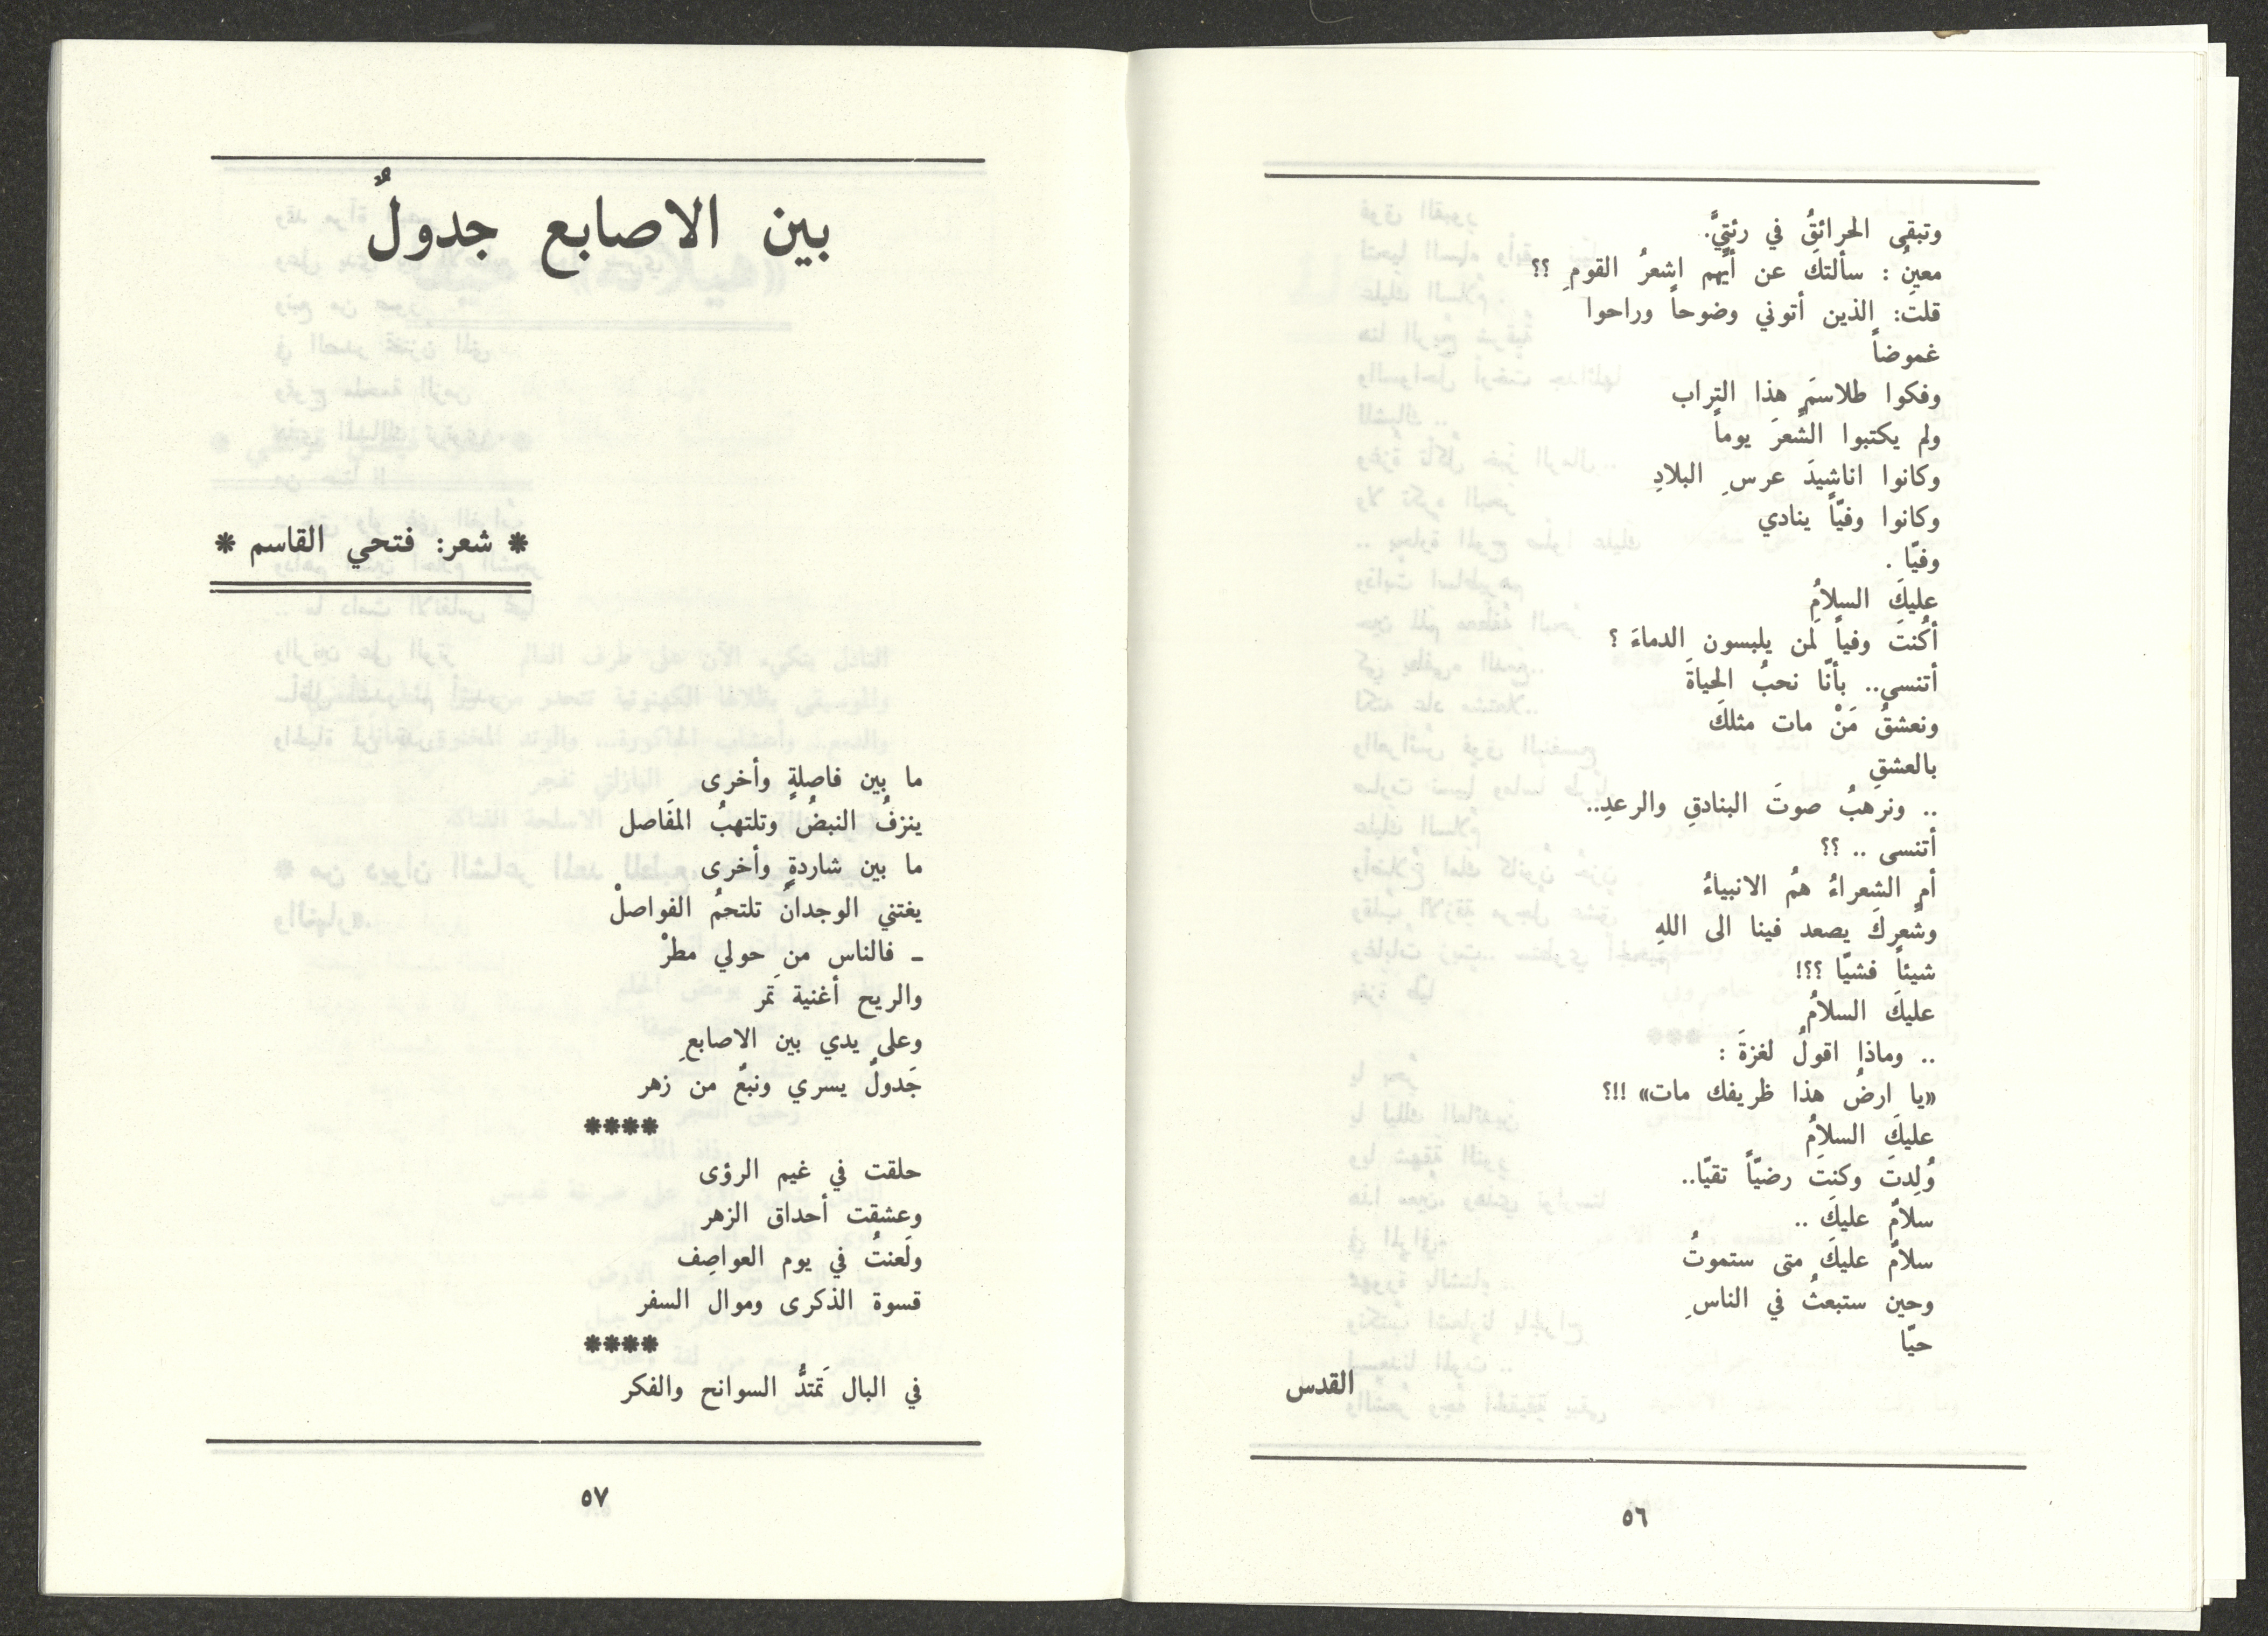 وتبقى الحرائقُ في رئتيَّ.
معينُ : سألتكَ عن أيُّهم اشعرُ القومِ ؟؟
قلتَ: الذين أتوني وضوحاً وراحوا
غموضاً
وفكوا طلاسمَ هذا التراب
ولم يكتبوا الشِّعرَ يوماً
وكانوا اناشيدَ عرسِ البلادِ
وكانوا وفيّاً ينادي
وفيّا .
عليكَ السلامُ
أكُنتَ وفياً لَمن يلبسون الدماءَ ؟
أتنسى.. بأنّا نحبُ الحياةَ
ونعشقُ مَنْ مات مثلكَ
بالعشقِ
.. ونرهبُ صوتَ البنادقِ والرعدِ..
أتنسى .. ؟؟
أمِ الشعراءُ همُ الانبياءُ
وشعركَ يصعد فينا الى اللهِ
شيئاً فشيّا ؟؟!
عليكَ السلامُ
.. وماذا اقولُ لغزةَ :
«يا ارضُ هذا ظريفك مات» !!؟
عليكَ السلامُ
وُلِدتَ وكنتَ رضيّاً تقيّا..
سلامٌ عليكَ ..
سلامٌ عليكَ متى ستموتُ
وحين ستبعثُ في الناسِ
حيّا
القدس
٥٦
بين الاصابع جدولٌ
* شعر: فتحي القاسم *
ما بين فاصلةٍ وأخرى
ينزفُ النبضُ وتلتهبُ المفَاصل
ما بين شاردةٍ وأخرى
يغتني الوجدانُ تلتحمُ الفواصلْ
ـ فالناس من حولي مطرْ
والريح أغنية تَمر
وعلى يدي بين الاصابعِ
جَدولٌ يسري ونبعٌ من زهر
****
حلقت في غيم الرؤى
وعشقت أحداق الزهر
ولَعنتُ في يوم العواصِف
قسوة الذكرى وموال السفر
****
في البال تَمتدُّ السوانح والفكر
٥٧